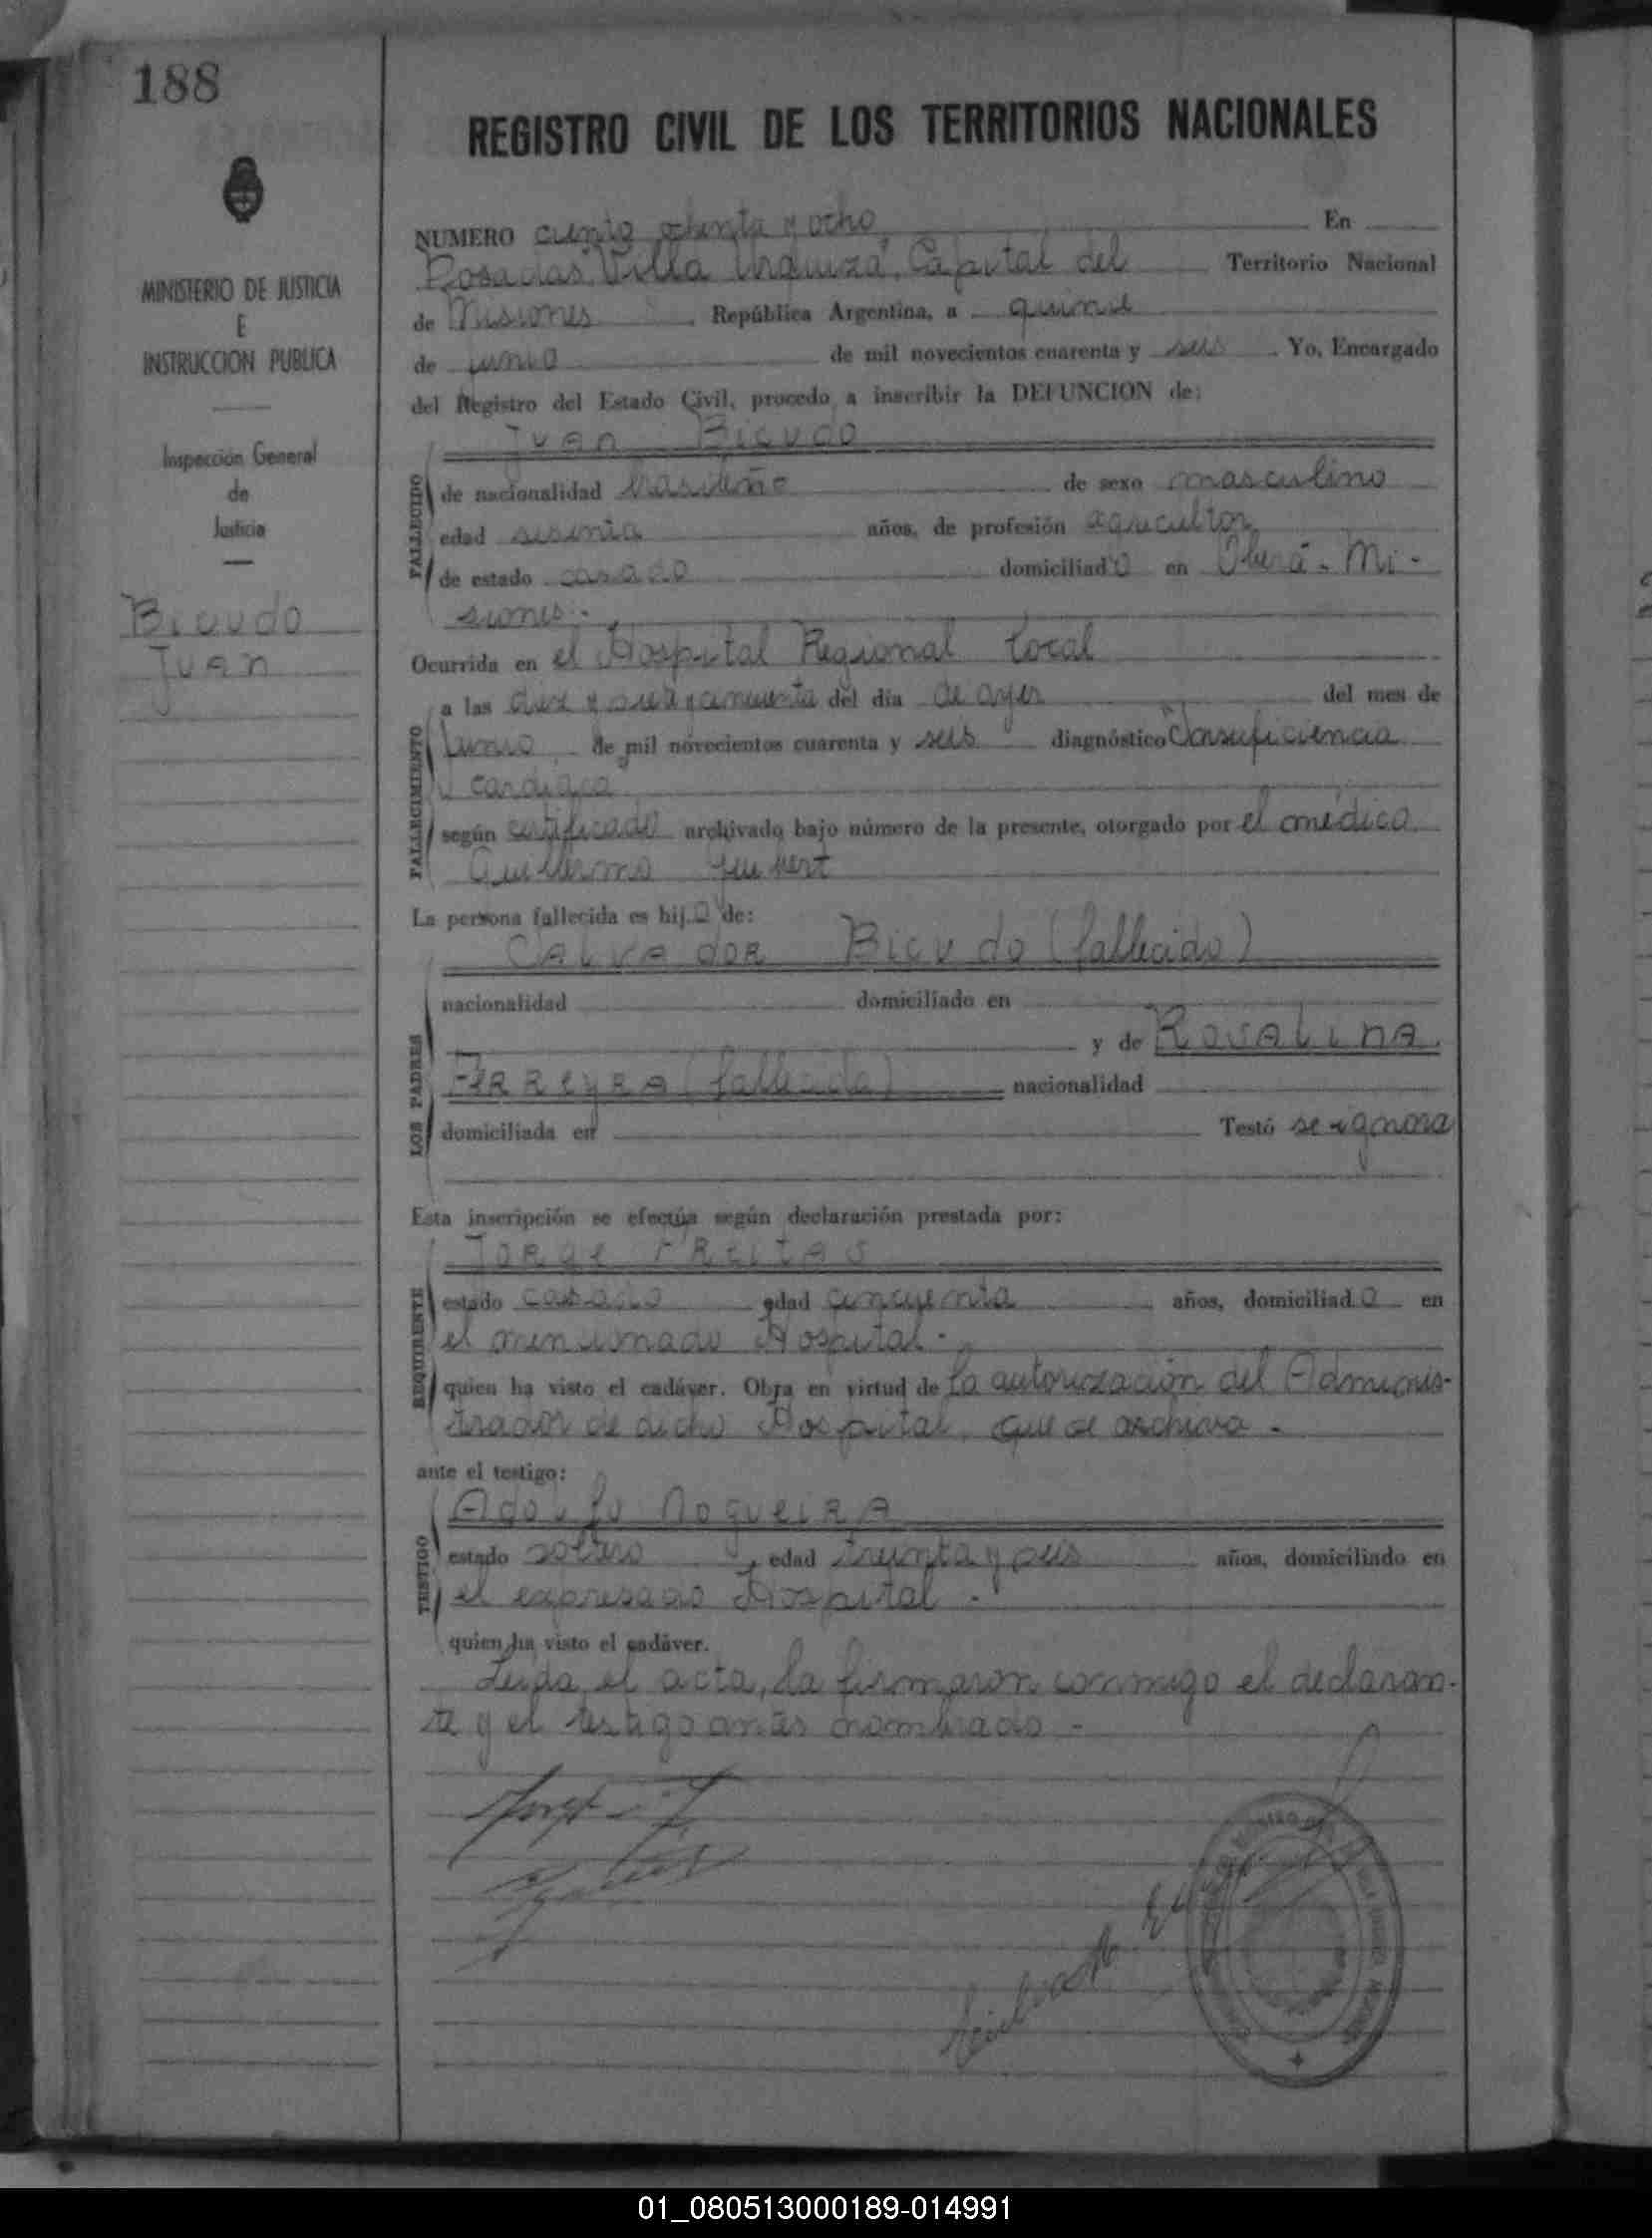 188
REGISTRO CIVIL DE LOS TERRITORIOS NACIONALES
MINISTERIO DE JUSTICIA
E
INSTRUCCION PUBLICA
Inspección General
de
Justicia
Bicudo
Juan
NUMERO ciento ochenta y ocho En
Posadas "Villa Urquiza", Capital del Territorio Nacional
de Misiones República Argentina, a quince
de junio de mil novecientos cuarenta y seis . Yo, Encargado
del Registro del Estado Civil, procedo a inscribir la DEFUNCION de:
Juan Bicudo
FALLECIDO
de nacionalidad brasileño de sexo masculino
edad sesenta años, de profesión agricultor
de estado casado domiciliado en Oberá - Mi-
siones.-
Ocurrida en el Hospital Regional local
FALLECIMIENTO
a las diez y seis y cincuenta del día de ayer del mes de
junio de mil novecientos cuarenta y seis diagnóstico "Insuficiencia
cardiaca
según certificado archivado bajo número de la presente, otorgado por el médico
Guillermo
La persona fallecida es hijo de:
LOS PADRES
CALVADOR Bicudo (fallecido)
nacionalidad domiciliado en
y de ROSALINA
FERREYRA (fallecida) nacionalidad
domiciliada en Testó se ignora
Esta inscripción se efectúa según declaración prestada por:
REQUIRENTE
JORGE FREITAS
estado casado edad cincuenta años, domiciliado en
el mencionado Hospital.-
quien ha visto el cadáver. Obra en virtud de la autorización del Adminis-
trador de dicho Hospital, que se archiva.-
ante el testigo:
TESTIGO
Adolfo NogueiRA
estado soltero , edad treinta y seis años, domiciliado en
el expresado Hospital.-
quien ha visto el cadáver.
Leida el acta, la firmaron conmigo el declaran-
te y el testigo antes nombrado.-
01_080513000189-014991